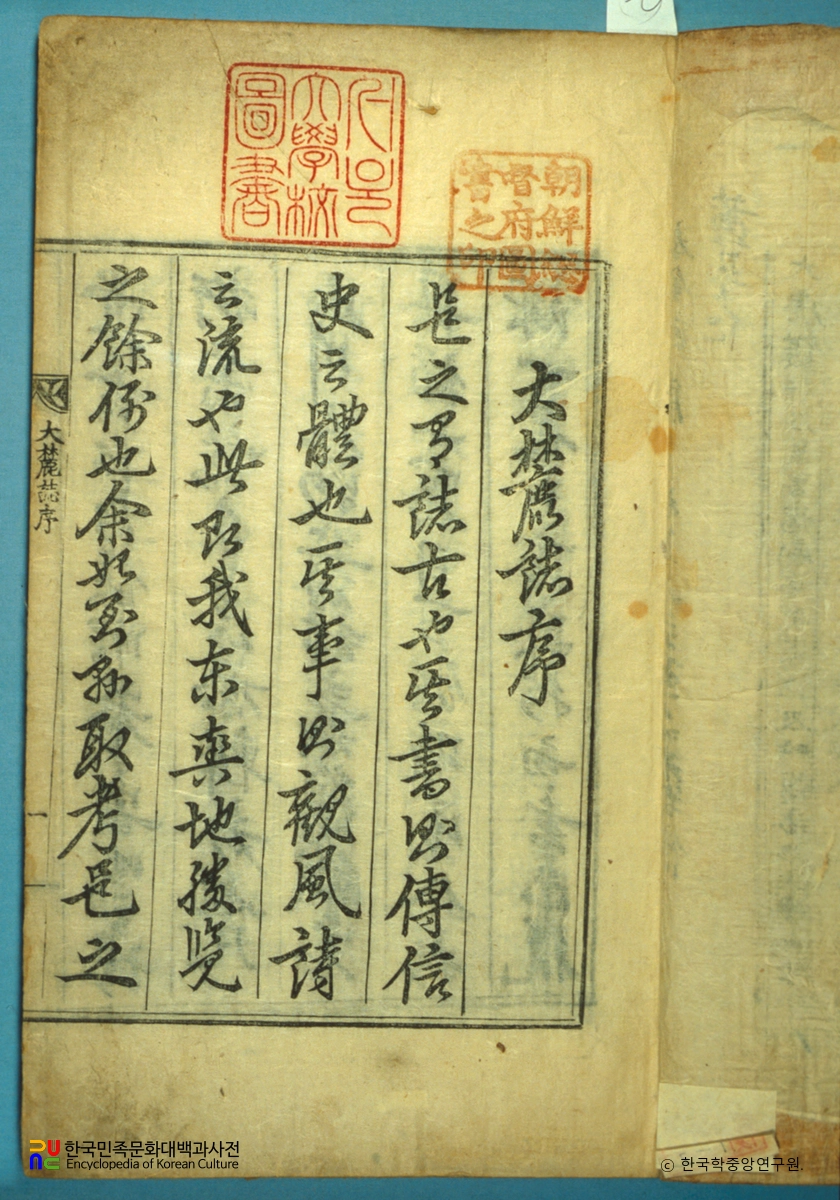 서울
大學校
圖書
朝鮮總
督府圖
書之印
大麓誌序
邑之有誌古也其書則傳信
史之體也其事則觀風詩
之流也此即我東輿地勝覽
之餘例也余始到縣取考邑之
大麓誌序
一
한국민족문화대백과사전
Encyclopedia of Korean Culture
ⓒ 한국학중앙연구원.